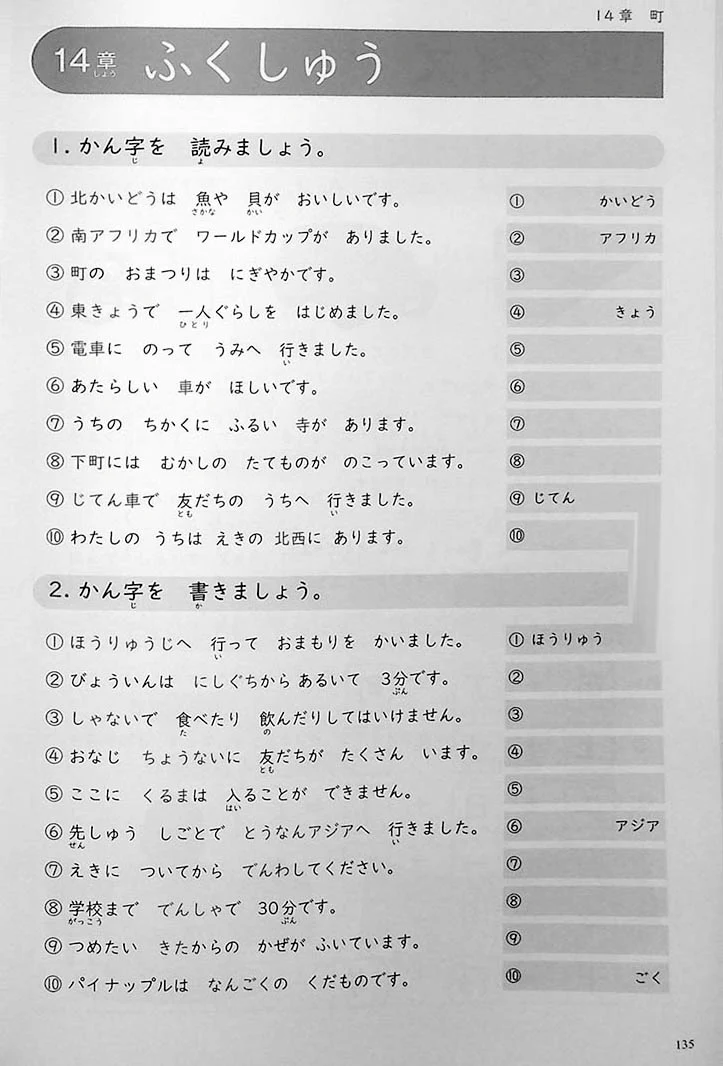 14章 町
14章 ふくしゅう
しょう
1. かん字を 読みましょう。
じ よ
① 北かいどうは 魚や 貝が おいしいです。 ① かいどう
さかな かい
② 南アフリカで ワールドカップが ありました。 ② アフリカ
③ 町の おまつりは にぎやかです。 ③
④ 東きょうで 一人ぐらしを はじめました。 ④ きょう
ひとり
⑤ 電車に のって うみへ 行きました。 ⑤
い
⑥ あたらしい 車が ほしいです。 ⑥
⑦ うちの ちかくに ふるい 寺が あります。 ⑦
⑧ 下町には むかしの たてものが のこっています。 ⑧
⑨ じてん車で 友だちの うちへ 行きました。 ⑨ じてん
とも い
⑩ わたしの うちは えきの 北西に あります。 ⑩
2. かん字を 書きましょう。
じ か
① ほうりゅうじへ 行って おまもりを かいました。 ① ほうりゅう
い
② びょういんは にしぐちから あるいて 3分です。 ②
ぷん
③ しゃないで 食べたり 飲んだりしてはいけません。 ③
た の
④ おなじ ちょうないに 友だちが たくさん います。 ④
とも
⑤ ここに くるまは 入ることが できません。 ⑤
はい
⑥ 先しゅう しごとで とうなんアジアへ 行きました。 ⑥ アジア
せん い
⑦ えきに ついてから でんわしてください。 ⑦
⑧ 学校まで でんしゃで 30分です。 ⑧
がっこう ぷん
⑨ つめたい きたからの かぜが ふいています。 ⑨
⑩ パイナップルは なんごくの くだものです。 ⑩ ごく
135